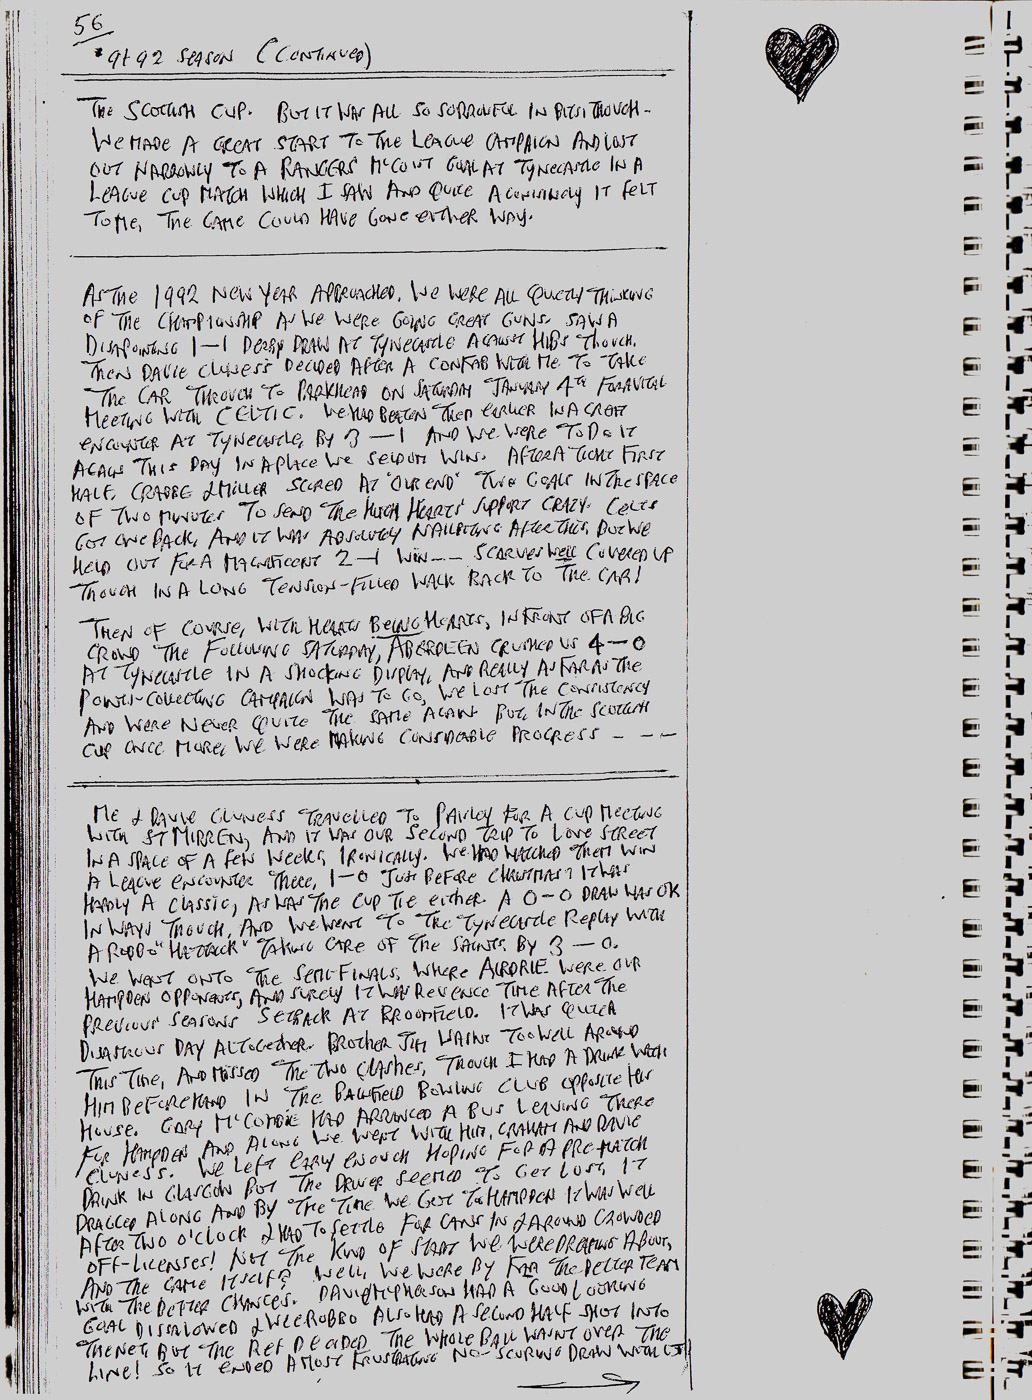 56
'91 92 SEASON (CONTINUED)
THE SCOTTISH CUP. BUT IT WAS ALL SO SORROWFUL IN BITS THOUGH -
WE MADE A GREAT START TO THE LEAGUE CAMPAIGN AND LOST
OUT NARROWLY TO A RANGERS' McCOIST GOAL AT TYNECASTLE IN A
LEAGUE CUP MATCH WHICH I SAW AND QUITE AGONISINGLY IT FELT
TO ME, THE GAME COULD HAVE GONE EITHER WAY.
AS THE 1992 NEW YEAR APPROACHED, WE WERE ALL QUIETLY THINKING
OF THE CHAMPIONSHIP AS WE WERE GOING GREAT GUNS. SAW A
DISAPOINTING 1-1 DERBY DRAW AT TYNECASTLE AGAINST HIBS THOUGH.
THEN DAVIE CLUNESS DECIDED AFTER A CONFAB WITH ME TO TAKE
THE CAR THROUGH TO PARKHEAD ON SATURDAY JANUARY 4TH FOR A VITAL
MEETING WITH CELTIC. WE HAD BEATEN THEM EARLIER IN A GREAT
ENCOUNTER AT TYNECASTLE, BY 3-1 AND WE WERE TO DO IT
AGAIN THIS DAY IN A PLACE WE SELDOM WIN. AFTER A TIGHT FIRST
HALF, CRABBE & MILLER SCORED AT 'OUR END' TWO GOALS IN THE SPACE
OF TWO MINUTES TO SEND THE HUGH HEARTS' SUPPORT CRAZY. CELTS
GOT ONE BACK, AND IT WAS ABSOLUTELY NAILBITING AFTER THIS, BUT WE
HELD OUT FOR A MAGNIFICENT 2-1 WIN --- SCARVES WELL COVERED UP
THOUGH IN A LONG TENSION-FILLED WALK BACK TO THE CAR!
THEN OF COURSE, WITH HEARTS BEING HEARTS, IN FRONT OF A BIG
CROWD THE FOLLOWING SATURDAY, ABERDEEN CRUSHED US 4-0
AT TYNECASTLE IN A SHOCKING DISPLAY, AND REALLY AS FAR AS THE
POINTS-COLLECTING CAMPAIGN WAS TO GO, WE LOST THE CONSISTENCY
AND WERE NEVER QUITE THE SAME AGAIN. BUT, IN THE SCOTTISH
CUP ONCE MORE, WE WERE MAKING CONSIDEABLE PROGRESS - - --
ME & DAVIE CLUNESS TRAVELLED TO PAISLEY FOR A CUP MEETING
WITH ST MIRREN, AND IT WAS OUR SECOND TRIP TO LOVE STREET
IN A SPACE OF A FEW WEEKS, IRONICALLY. WE HAD WATCHED THEM WIN
A LEAGUE ENCOUNTER THERE, 1-0 JUST BEFORE CHRISTMAS? IT WAS
HARDLY A CLASSIC, AS WAS THE CUP TIE EITHER. A 0-0 DRAW WAS OK
IN WAYS THOUGH, AND WE WENT TO THE TYNECASTLE REPLAY WITH
A ROBBO "HATTRICK" TAKING CARE OF THE SAINTS BY 3-0.
WE WENT ONTO THE SEMI-FINALS, WHERE AIRDRIE WERE OUR
HAMPDEN OPPONENTS, AND SURELY IT WAS REVENGE TIME AFTER THE
PREVIOUS SEASONS SETBACK AT BROOMFIELD. IT WAS QUITE A
DISASTROUS DAY ALTOGETHER. BROTHER JIM WASN'T TOO WELL AROUND
THIS TIME, AND MISSED THE TWO CLASHES, THOUGH I HAD A DRINK WITH
HIM BEFOREHAND IN THE BALFIELD BOWLING CLUB OPPOSITE HIS
HOUSE. GARY McCOMBIE HAD ARRANGED A BUS LEAVING THERE
FOR HAMPDEN AND ALONG WE WENT WITH HIM, GRAHAM AND DAVIE
CLUNESS. WE LEFT EARLY ENOUGH HOPING FOR A PRE-MATCH
DRINK IN GLASGOW BUT THE DRIVER SEEMED TO GET LOST, IT
DRAGGED ALONG AND BY THE TIME WE GOT TO HAMPDEN IT WAS WELL
AFTER TWO O'CLOCK & HAD TO SETTLE FOR CANS IN & AROUND CROWDED
OFF-LICENSES! NOT THE KIND OF START WE WERE DREAMING ABOUT,
AND THE GAME ITSELF? WELL, WE WERE BY FAR THE BETTER TEAM
WITH THE BETTER CHANCES. DAVID McPHERSON HAD A GOOD LOOKING
GOAL DISALLOWED & WEE ROBBO ALSO HAD A SECOND HALF SHOT INTO
THE NET, BUT THE REF DECIDED THE WHOLE BALL WASN'T OVER THE
LINE! SO IT ENDED A MOST FRUSTRATING NO-SCORING DRAW WITH US